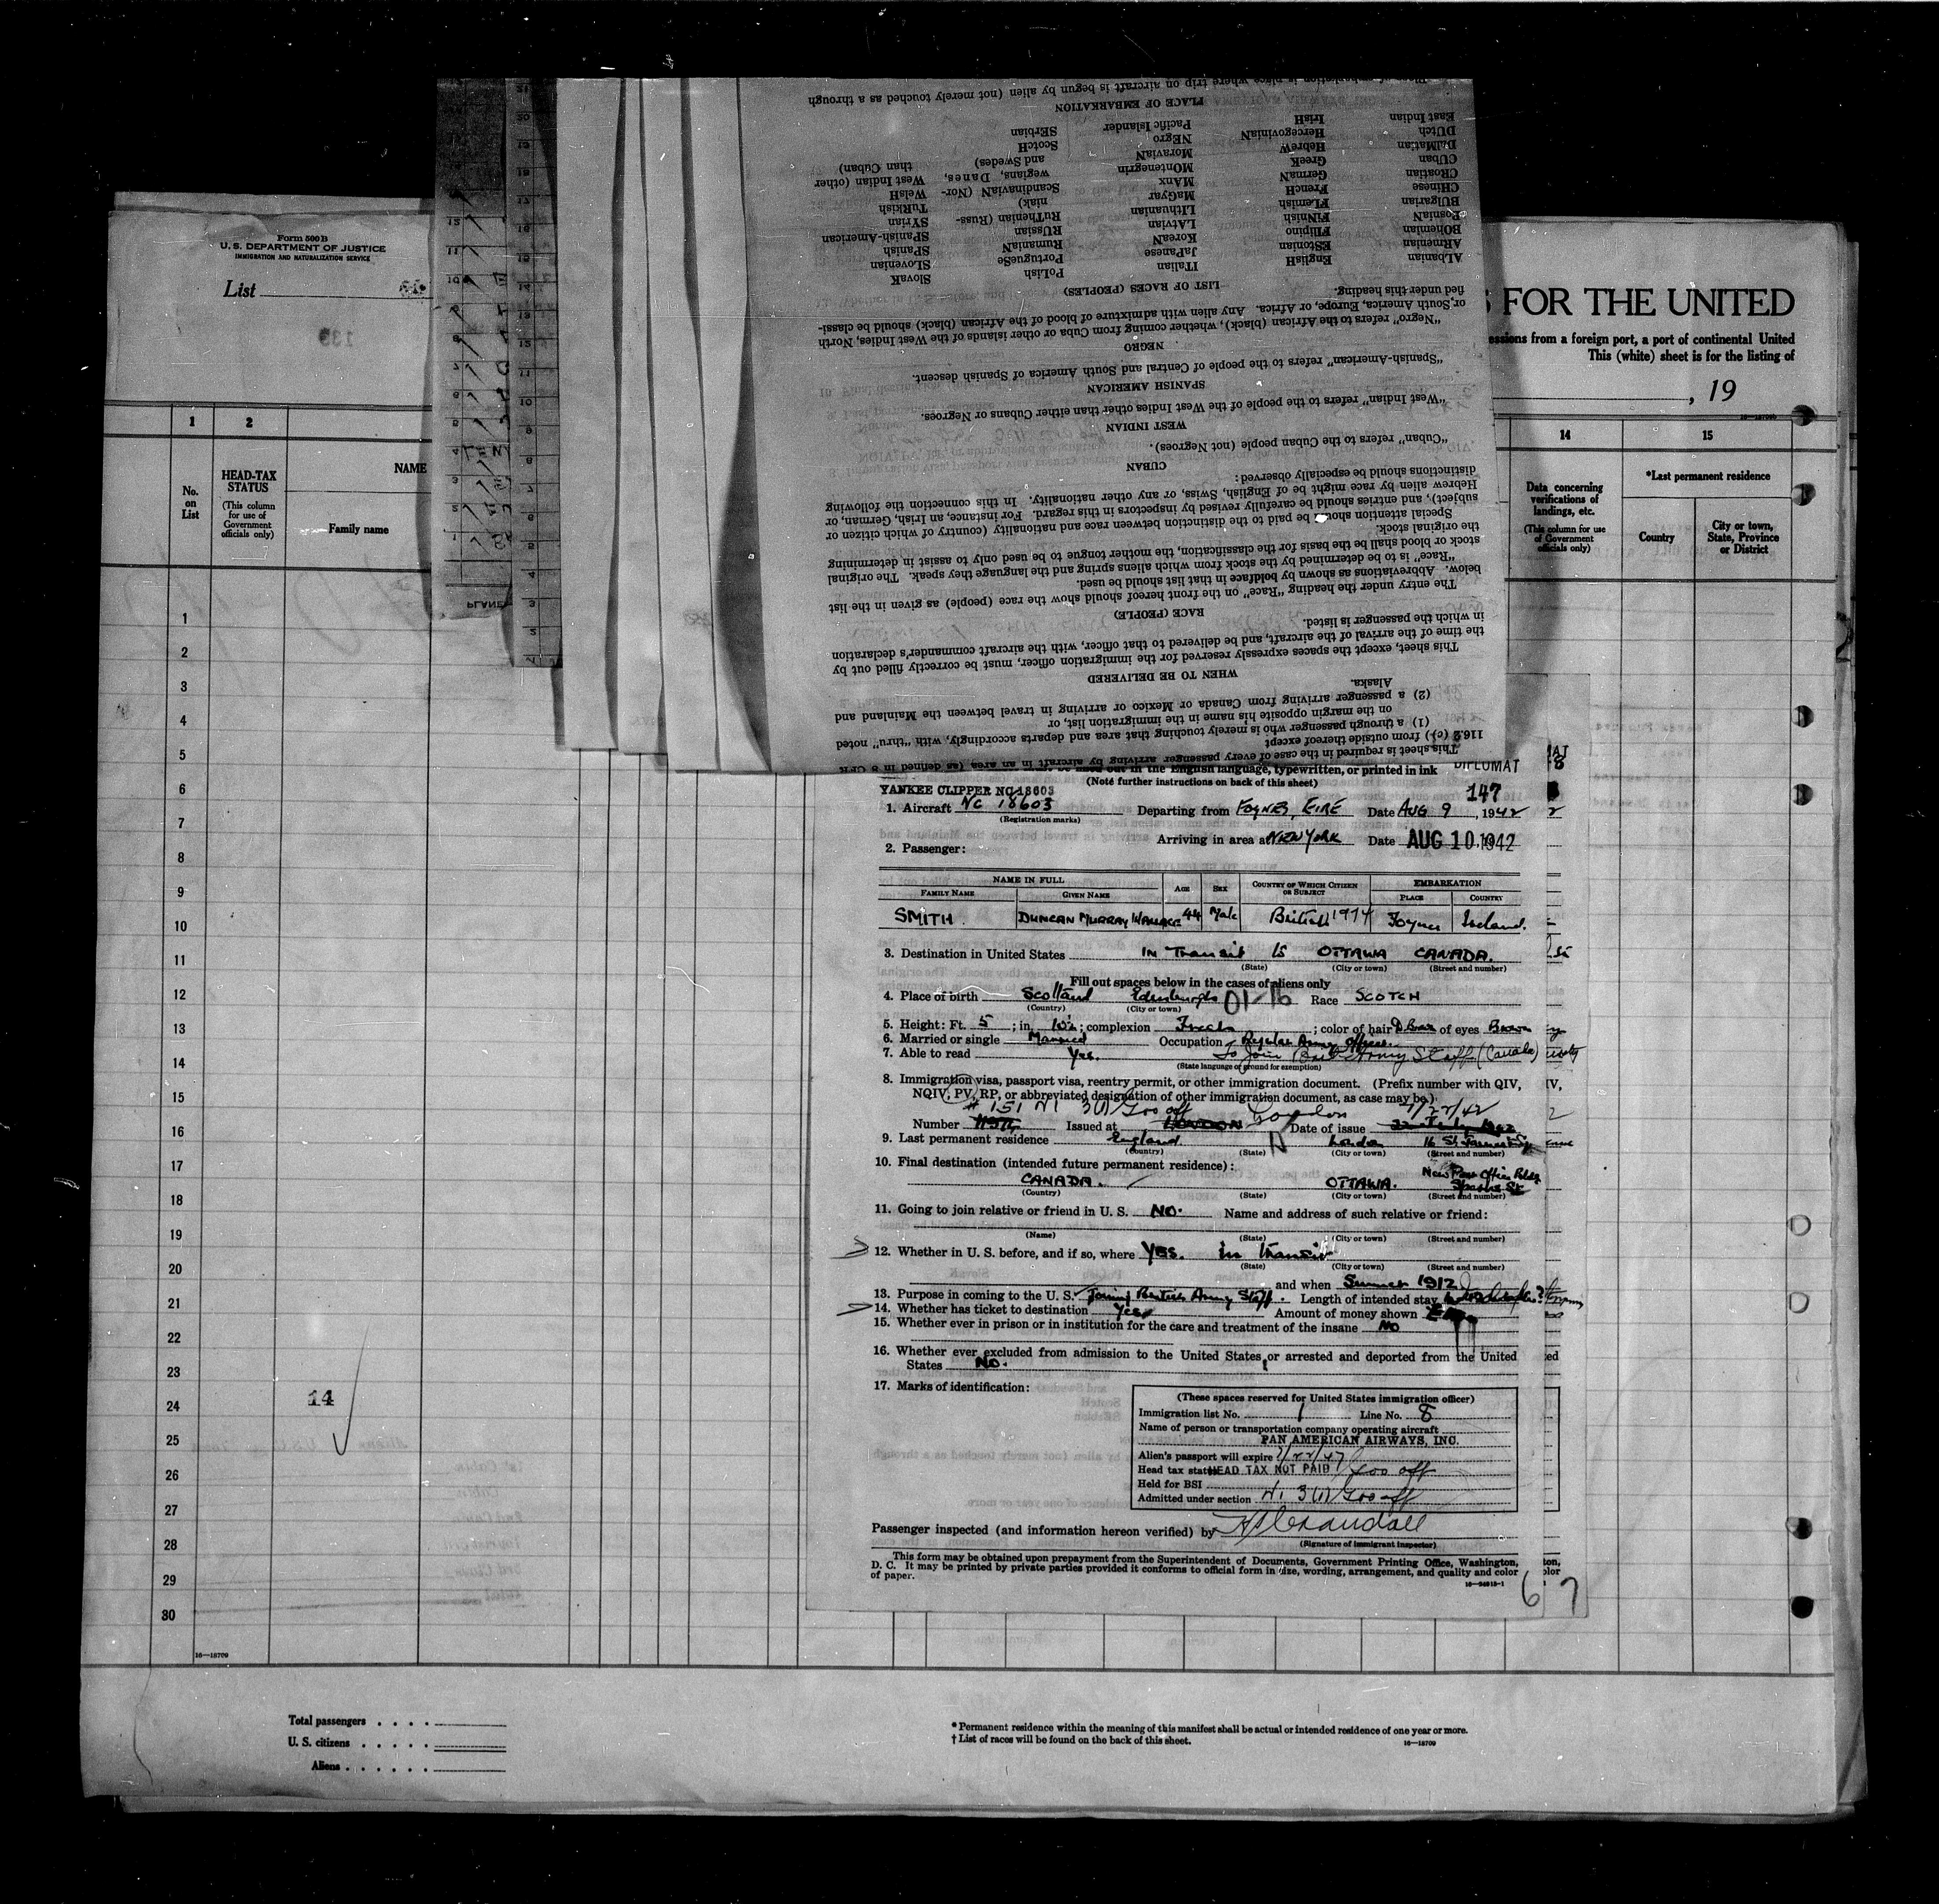 Form 500 B
U. S. DEPARTMENT OF JUSTICE
IMMIGRATION AND NATURALIZATION SERVICE
List
S FOR THE UNITED
essions from a foreign port, a port of continental United
This (white) sheet is for the listing of
, 19
1 2 14 15
No. on List
HEAD-TAX STATUS
(This column for use of Government officials only)
NAME
Family name
Data concerning verifications of landings, etc.
(This column for use of Government officials only)
*Last permanent residence
Country
City or town, State, Province or District
1
2
3
4
5
6
7
8
9
10
11
12
13
14
15
16
17
18
19
20
21
22
23
24
25
26
27
28
29
30
14
16—18709
Total passengers . . . .
U. S. citizens . . . . .
Aliens . . . . . .
* Permanent residence within the meaning of this manifest shall be actual or intended residence of one year or more.
† List of races will be found on the back of this sheet.
16—18709
This sheet is required in the case of every passenger arriving by aircraft in an area (as defined in 8 CFR
116.2 (c)) from outside thereof except
(1) a through passenger who is merely touching that area and departs accordingly, with "thru" noted
on the margin opposite his name in the immigration list, or
(2) a passenger arriving from Canada or Mexico or arriving in travel between the Mainland and
Alaska.
WHEN TO BE DELIVERED
This sheet, except the spaces expressly reserved for the immigration officer, must be correctly filled out by
the time of the arrival of the aircraft, and be delivered to that officer, with the aircraft commander's declaration
in which the passenger is listed.
RACE (PEOPLE)
The entry under the heading "Race" on the front hereof should show the race (people) as given in the list
below. Abbreviations as shown by boldface in that list should be used.
"Race" is to be determined by the stock from which aliens spring and the language they speak. The original
stock or blood shall be the basis for the classification, the mother tongue to be used only to assist in determining
the original stock.
Special attention should be paid to the distinction between race and nationality (country of which citizen or
subject), and entries should be carefully revised by inspectors in this regard. For instance, an Irish, German, or
Hebrew alien by race might be of English, Swiss, or any other nationality. In this connection the following
distinctions should be especially observed:
CUBAN
"Cuban" refers to the Cuban people (not Negroes).
WEST INDIAN
"West Indian" refers to the people of the West Indies other than either Cubans or Negroes.
SPANISH AMERICAN
"Spanish-American" refers to the people of Central and South America of Spanish descent.
NEGRO
"Negro" refers to the African (black), whether coming from Cuba or other islands of the West Indies, North
or South America, Europe, or Africa. Any alien with admixture of blood of the African (black) should be classi-
fied under this heading.
LIST OF RACES (PEOPLES)
ALbanian EnglisH ITalian PoLish SlovaK
ARmenian EStonian JaPanese PortugeSe SLovenian
BOhemian FIlipino KoreaN RumaniaN SPanish
BosniaN FINnish LATvian RUssian SPanish-American
BUlgarian FLemish LIThuanian RuThenian (Russ- SYrian
CHinese FrencH MaGyar niak) TuRkish
CRoatian GermaN MAnx ScandinaviaN (Nor- WelsH
CUban GreeK MOntenegrin wegians, Danes, West Indian (other
DalMatian HebreW MoraviaN and Swedes) than Cuban)
DUtch HercegovinaN NEgro ScotcH
East Indian IrisH Pacific Islander SErbian
PLACE OF EMBARKATION
Place of embarkation is place where trip on aircraft is begun by alien (not merely touched as a through
in the English language, typewritten, or printed in ink
DIPLOMAT
(Note further instructions on back of this sheet)
147
YANKEE CLIPPER NC 18603
1. Aircraft NC 18603 Departing from FOYNES, EIRE Date AUG 9, 1942
(Registration marks)
Arriving in area at NEW YORK Date AUG 10 1942
2. Passenger:
NAME IN FULL
FAMILY NAME GIVEN NAME AGE SEX COUNTRY OF WHICH CITIZEN OR SUBJECT EMBARKATION PLACE COUNTRY
SMITH. DUNCAN MURRAY WALLACE 44 Male British Foynes Ireland.
3. Destination in United States IN Transit to OTTAWA CANADA.
(State) (City or town) (Street and number)
Fill out spaces below in the cases of aliens only
4. Place of birth Scotland Edinburgh 01-16 Race SCOTCH
(Country) (City or town)
5. Height: Ft. 5; in. 10½; complexion Fresh; color of hair of eyes Brown
6. Married or single Married Occupation Regular Army Officer.
7. Able to read Yes. To join Brit. Army Staff (Canada)
(State language or ground for exemption)
8. Immigration visa, passport visa, reentry permit, or other immigration document. (Prefix number with QIV,
NQIV, PV, RP, or abbreviated designation of other immigration document, as case may be.)
# 151 3(1) Gov off London 7/22/42
Number Issued at Date of issue
9. Last permanent residence England London
(Country) (State) (City or town) (Street and number)
10. Final destination (intended future permanent residence): New Post Office Bldg
CANADA. OTTAWA. Sparks St.
(Country) (State) (City or town) (Street and number)
11. Going to join relative or friend in U. S. NO. Name and address of such relative or friend:
(Name) (State) (City or town) (Street and number)
12. Whether in U. S. before, and if so, where YES. in transit
(State) (City or town) (Street and number)
and when Summer 1912
13. Purpose in coming to the U. S. Joining British Army Staff. Length of intended stay
14. Whether has ticket to destination Yes Amount of money shown
15. Whether ever in prison or in institution for the care and treatment of the insane NO
16. Whether ever excluded from admission to the United States, or arrested and deported from the United
States NO.
17. Marks of identification:
(These spaces reserved for United States immigration officer)
Immigration list No. 1 Line No. 8
Name of person or transportation company operating aircraft
PAN AMERICAN AIRWAYS, INC.
Alien's passport will expire 7/22/47
Head tax status HEAD TAX NOT PAID Gov off
Held for BSI
Admitted under section 3(1) Gov off
Passenger inspected (and information hereon verified) by
(Signature of immigrant inspector)
This form may be obtained upon prepayment from the Superintendent of Documents, Government Printing Office, Washington,
D. C. It may be printed by private parties provided it conforms to official form in size, wording, arrangement, and quality and color
of paper.
6 7